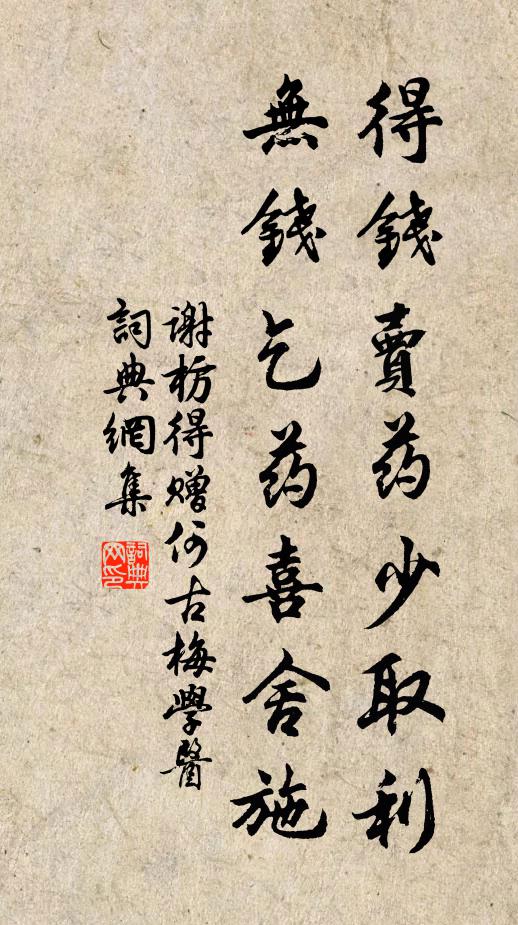 得錢賣药少取利
無錢乞药喜舍施
谢枋得赠何古梅學醫
詞典網集
詞典網印